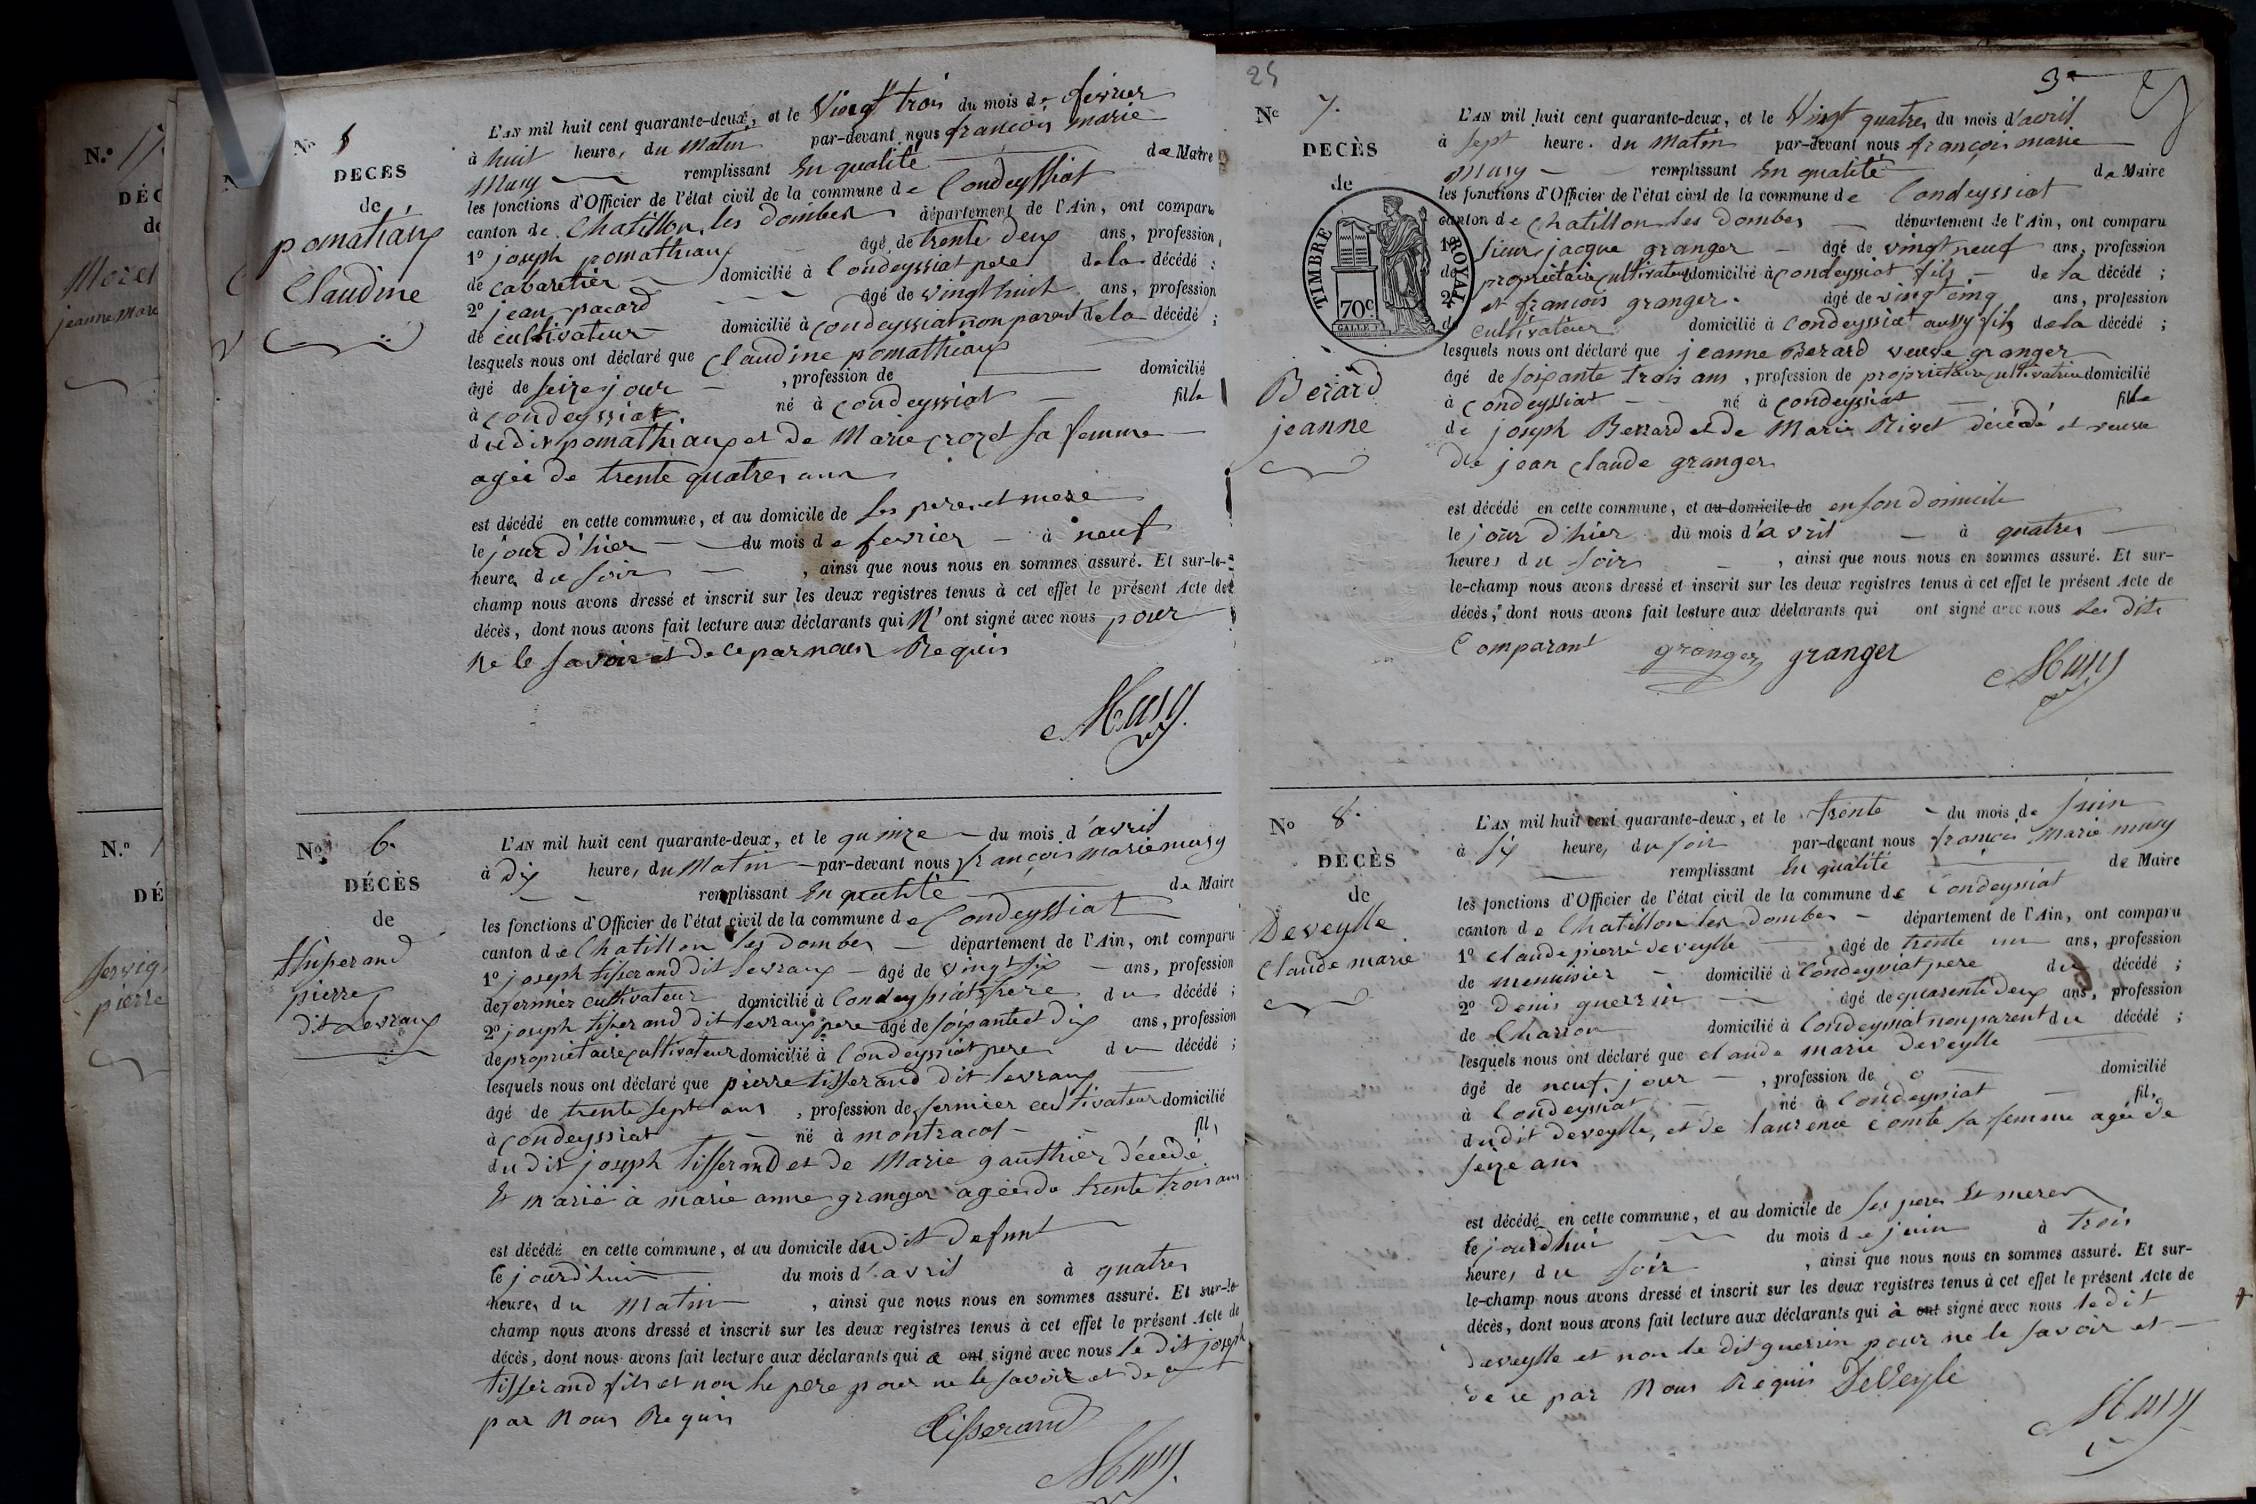 N.º 17
DÉC
de
Morel
jeanne Mare
N.º 1
DÉ
pierre
Nº 5
DÉCÈS
de
pomathiaux
Claudine
L'AN mil huit cent quarante-deux, et le Vingt trois du mois de fevrier
à huit heure, du Matin par-devant nous françois marie
Musy remplissant En qualité de Maire
les fonctions d'Officier de l'état civil de la commune de Condeyssiat
canton de Chatillon les dombes département de l'Ain, ont comparu
1º joseph pomathiaux âgé de trente deux ans, profession
de cabaretier domicilié à Condeyssiat pere de la décédé ;
2º jean pacard âgé de vingt huit ans, profession
de cultivateur domicilié à Condeyssiat non parent de la décédé ;
lesquels nous ont déclaré que Claudine pomathiaux
âgé de seize jour , profession de domicilié
à Condeyssiat né à Condeyssiat fille
dudit pomathiaux et de Marie crozet sa femme
agée de trente quatres ans
est décédé en cette commune, et au domicile de ses peres et mere
le jour d'hier du mois de fevrier à neuf
heures du soir , ainsi que nous nous en sommes assuré. Et sur-le-
champ nous avons dressé et inscrit sur les deux registres tenus à cet effet le présent Acte de
décès, dont nous avons fait lecture aux déclarants qui N'ont signé avec nous pour
ne le savoir et de ce par nous Requis
Musy
Nº 6.
DÉCÈS
de
tisserand
pierre
dit Levraux
L'AN mil huit cent quarante-deux, et le quinze du mois d'avril
à dix heure, du Matin par-devant nous françois marie musy
remplissant En qualité de Maire
les fonctions d'Officier de l'état civil de la commune de Condeyssiat
canton de Chatillon les dombes département de l'Ain, ont comparu
1º joseph tisserand dit levraux âgé de vingt six ans, profession
de fermier cultivateur domicilié à Condeyssiat frere du décédé ;
2º joseph tisserand dit levraux pere âgé de soixante et dix ans, profession
de proprietaire cultivateur domicilié à Condeyssiat pere du décédé ;
lesquels nous ont déclaré que pierre tisserand dit levraux
âgé de trente sept ans , profession de fermier cultivateur domicilié
à Condeyssiat né à montracol fils
du dit joseph tisserand et de Marie gauthier décédé
Et marié à marie anne granger agée de trente trois ans
est décédé en cette commune, et au domicile du dit defunt
le jourd'hui du mois d'avril à quatres
heures du Matin , ainsi que nous nous en sommes assuré. Et sur-le
champ nous avons dressé et inscrit sur les deux registres tenus à cet effet le présent Acte de
décès, dont nous avons fait lecture aux déclarants qui a ont signé avec nous le dit joseph
tisserand fils et non le pere pour ne le savoir et de ce
par Nous Requis
Tisserand
Musy
25
3e
Nº 7.
DÉCÈS
de
TIMBRE ROYAL
70c
Berard
jeanne
L'AN mil huit cent quarante-deux, et le Vingt quatres du mois d'avril
à sept heure. du Matin par-devant nous françois marie
musy remplissant En qualité de Maire
les fonctions d'Officier de l'état civil de la commune de Condeyssiat
canton de Chatillon les dombes département de l'Ain, ont comparu
1º sieur jacque granger âgé de vingt neuf ans, profession
de proprietaire cultivateur domicilié à Condeyssiat fils de la décédé ;
2º et françois granger. âgé de vingt cinq ans, profession
de cultivateur domicilié à Condeyssiat aussy fils de la décédé ;
lesquels nous ont déclaré que jeanne Berard veuve granger
âgé de soixante trois ans , profession de proprietaire cultivatrice domicilié
à Condeyssiat né à Condeyssiat fille
de joseph Berrard et de Marie Rivet décédé et veuve
de jean claude granger
est décédé en cette commune, et au domicile de en son domicile
le jour d'hier du mois d'avril à quatres
heures du soir , ainsi que nous nous en sommes assuré. Et sur-
le-champ nous avons dressé et inscrit sur les deux registres tenus à cet effet le présent Acte de
décès, dont nous avons fait lecture aux déclarants qui ont signé avec nous les dits
Comparant granger granger
Musy
Nº 8.
DÉCÈS
de
Deveylle
Claude marie
L'AN mil huit cent quarante-deux, et le trente du mois de juin
à six heure, du soir par-devant nous françois marie musy
remplissant En qualité de Maire
les fonctions d'Officier de l'état civil de la commune de Condeyssiat
canton de Chatillon les dombes département de l'Ain, ont comparu
1º Claude pierre deveylle âgé de trente un ans, profession
de menuisier domicilié à Condeyssiat pere du décédé ;
2º Denis guerrin âgé de quarente deux ans, profession
de Charron domicilié à Condeyssiat non parent du décédé ;
lesquels nous ont déclaré que claude marie deveylle
âgé de neuf jour , profession de domicilié
à Condeyssiat né à Condeyssiat fils
du dit deveylle, et de laurence comte sa femme agée de
seize ans
est décédé en cette commune, et au domicile de ses peres Et meres
le jourd'hui du mois de juin à trois
heures du soir , ainsi que nous nous en sommes assuré. Et sur-
le-champ nous avons dressé et inscrit sur les deux registres tenus à cet effet le présent Acte de
décès, dont nous avons fait lecture aux déclarants qui à ont signé avec nous le dit
deveylle et non le dit guerrin pour ne le savoir et
de ce par Nous Requis DeVeyle
Musy